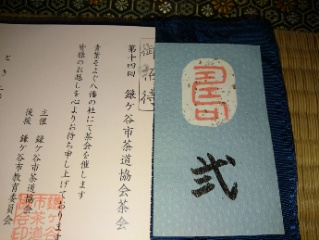 御招待
第十四回 鎌ケ谷市茶道協会茶会
青葉そよぐ八幡の社にて茶会を催します
皆様のお越しを心よりお待ち申し上げております
主催 鎌ケ谷市茶道協会
後援 鎌ケ谷市教育委員会
とき
弐